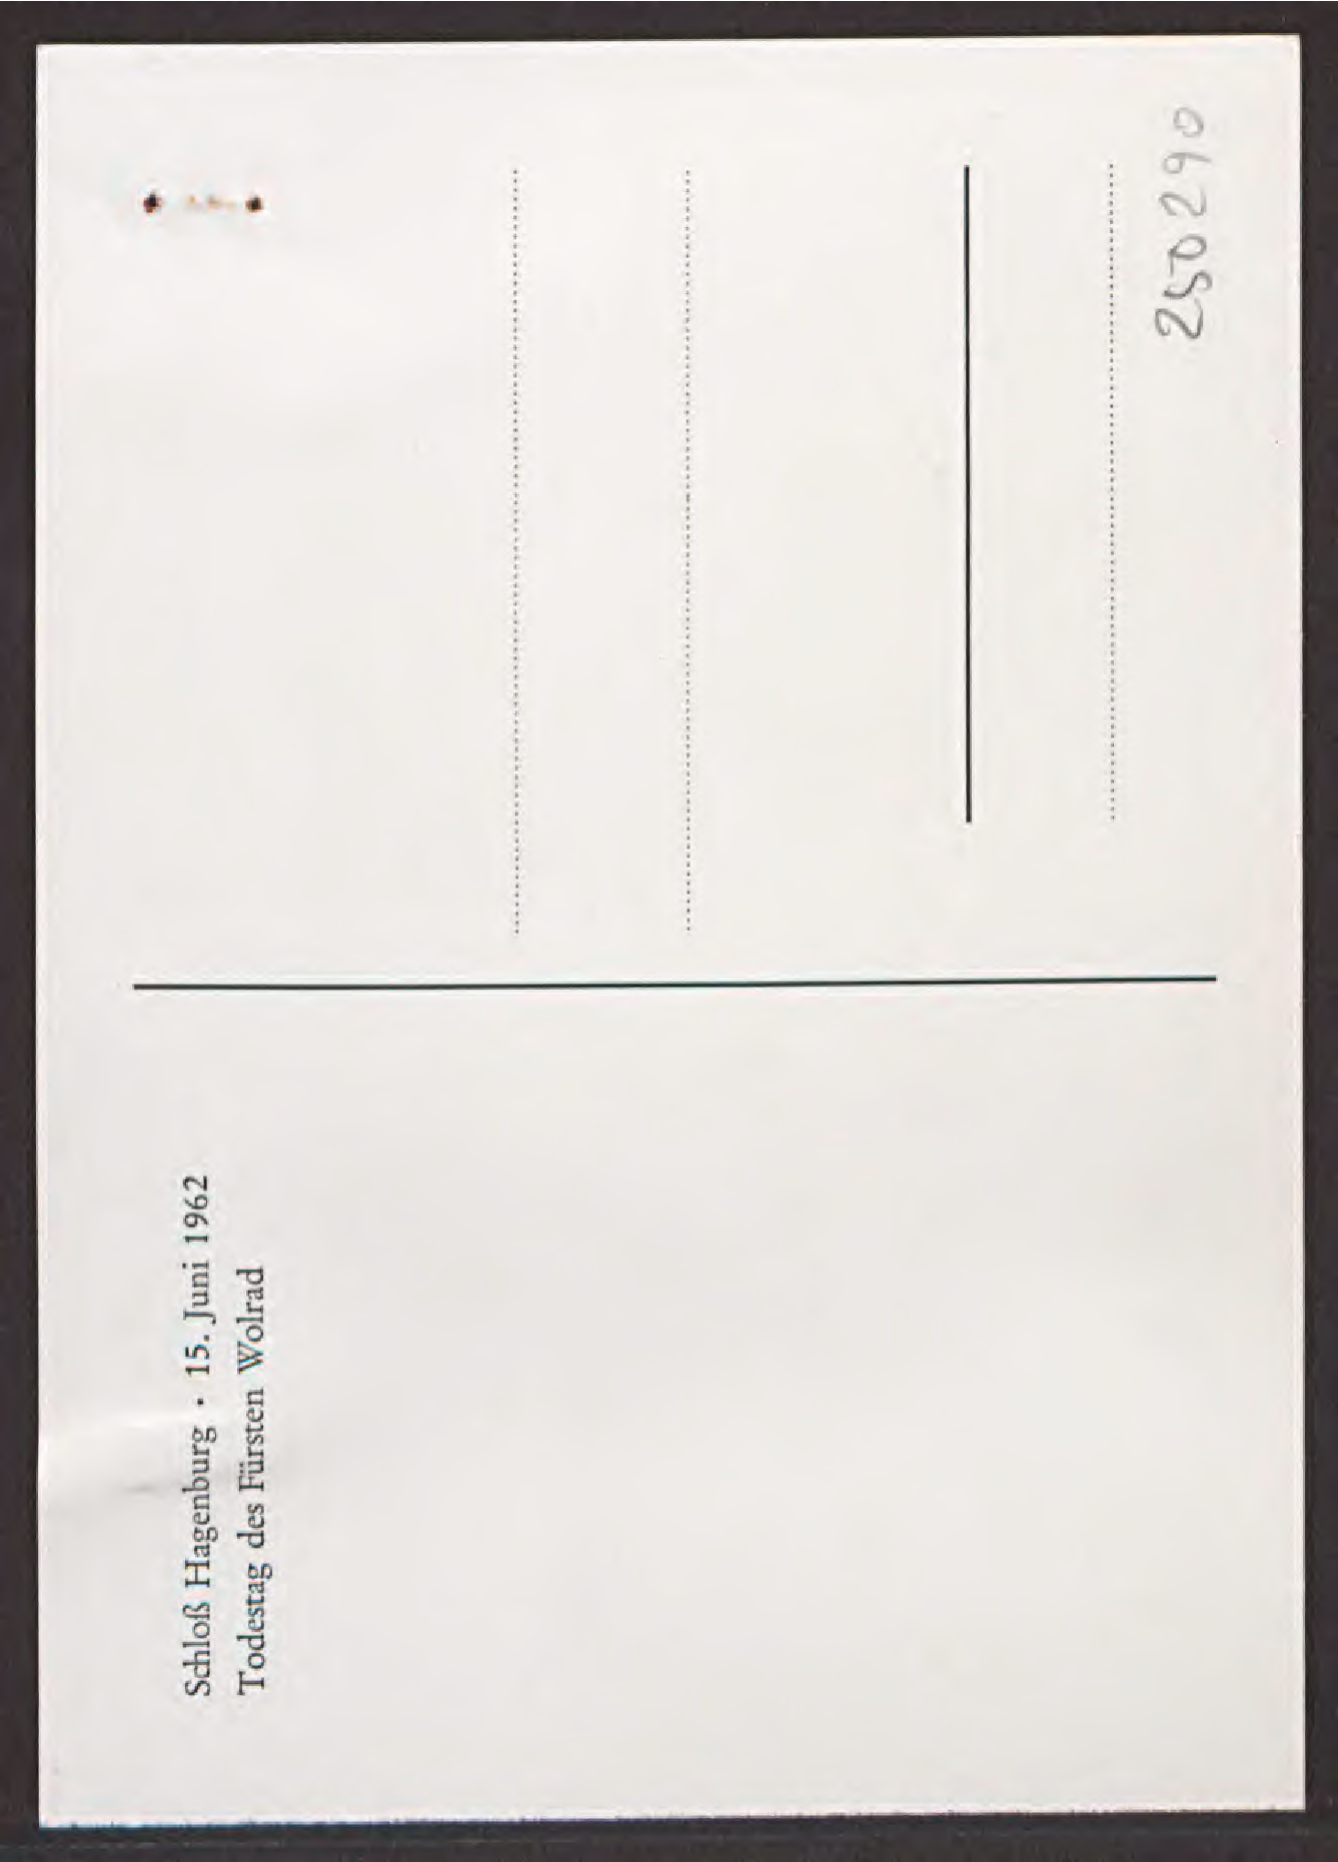 Schloß Hagenburg · 15. Juni 1962
Todestag des Fürsten Wolrad
250290